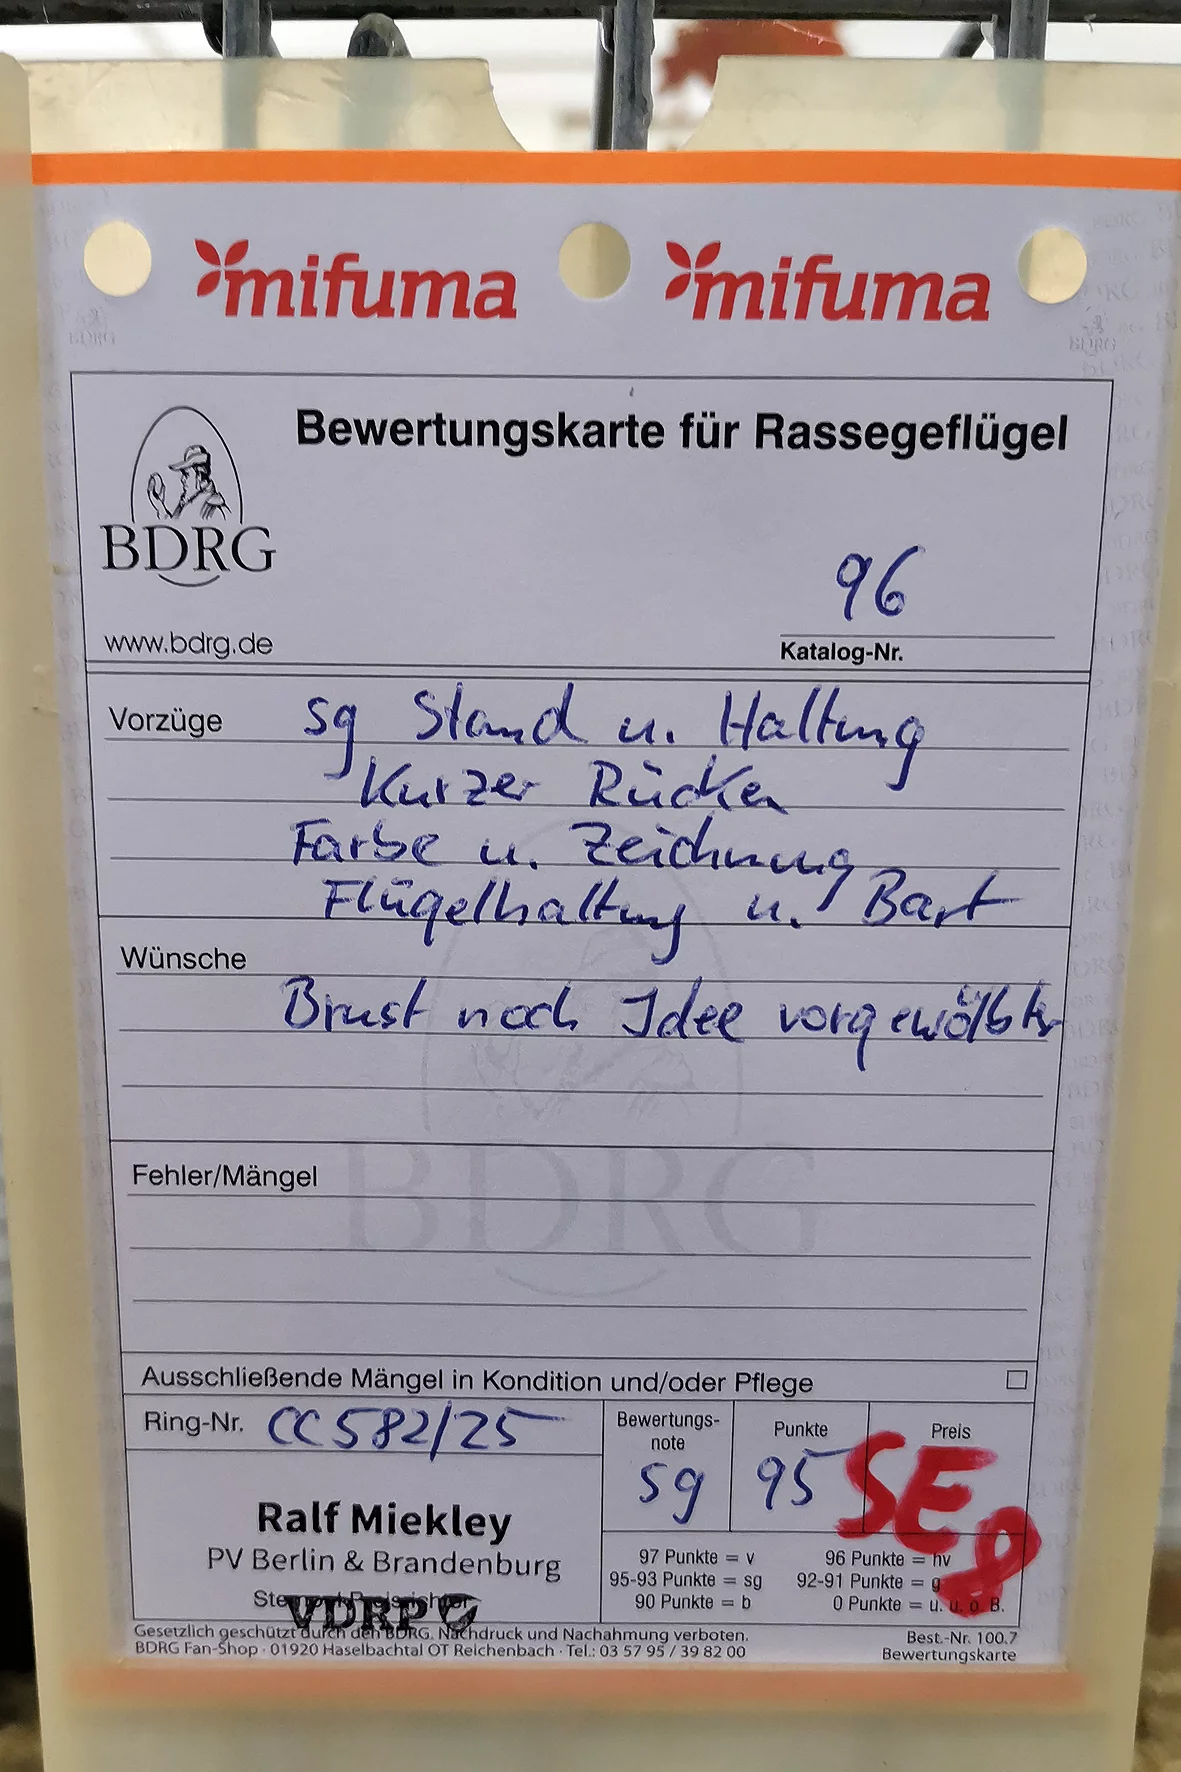 mifuma mifuma
Bewertungskarte für Rassegeflügel
BDRG
www.bdrg.de
96
Katalog-Nr.
Vorzüge sg Stand u. Haltung
Kurzer Rücken
Farbe u. Zeichnung
Flügelhaltung u. Bart
Wünsche
Brust noch Idee vorgewölbter
BDRG
Fehler/Mängel
Ausschließende Mängel in Kondition und/oder Pflege
Ring-Nr. CC582/25
Bewertungs-
note
sg
Punkte
95
Preis
SE8
Ralf Miekley
PV Berlin & Brandenburg
VDRP
97 Punkte = v 96 Punkte = hv
95-93 Punkte = sg 92-91 Punkte = g
90 Punkte = b 0 Punkte = u. u. o. B.
Gesetzlich geschützt durch den BDRG. Nachdruck und Nachahmung verboten.
BDRG Fan-Shop · 01920 Haselbachtal OT Reichenbach · Tel.: 03 57 95 / 39 82 00
Best.-Nr. 100.7
Bewertungskarte